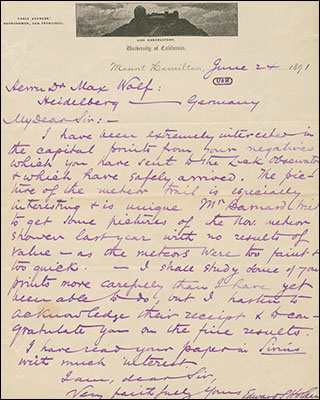 CABLE ADDRESS:
ASTRONOMER, SAN FRANCISCO.
LICK OBSERVATORY,
University of California.
Mount Hamilton, June 24 1891
Herrn Dr Max Wolf:
Heidelberg — Germany
My dear Sir:—
I have been extremely interested in
the capital prints from your negatives
which you have sent to the Lick Observatory
& which have safely arrived. The pic-
ture of the meteor trail is especially
interesting & is unique. Mr Barnard tried
to get some pictures of the Nov. meteor
shower last year with no results of
value — as the meteors were too faint &
too quick. — I shall study some of your
prints more carefully than I have yet
been able to do, but I hasten to
acknowledge their receipt & to con-
gratulate you on the fine results.
I have read your paper in Sirius
with much interest
I am, dear Sir,
Very faithfully Yours Edward S Holden